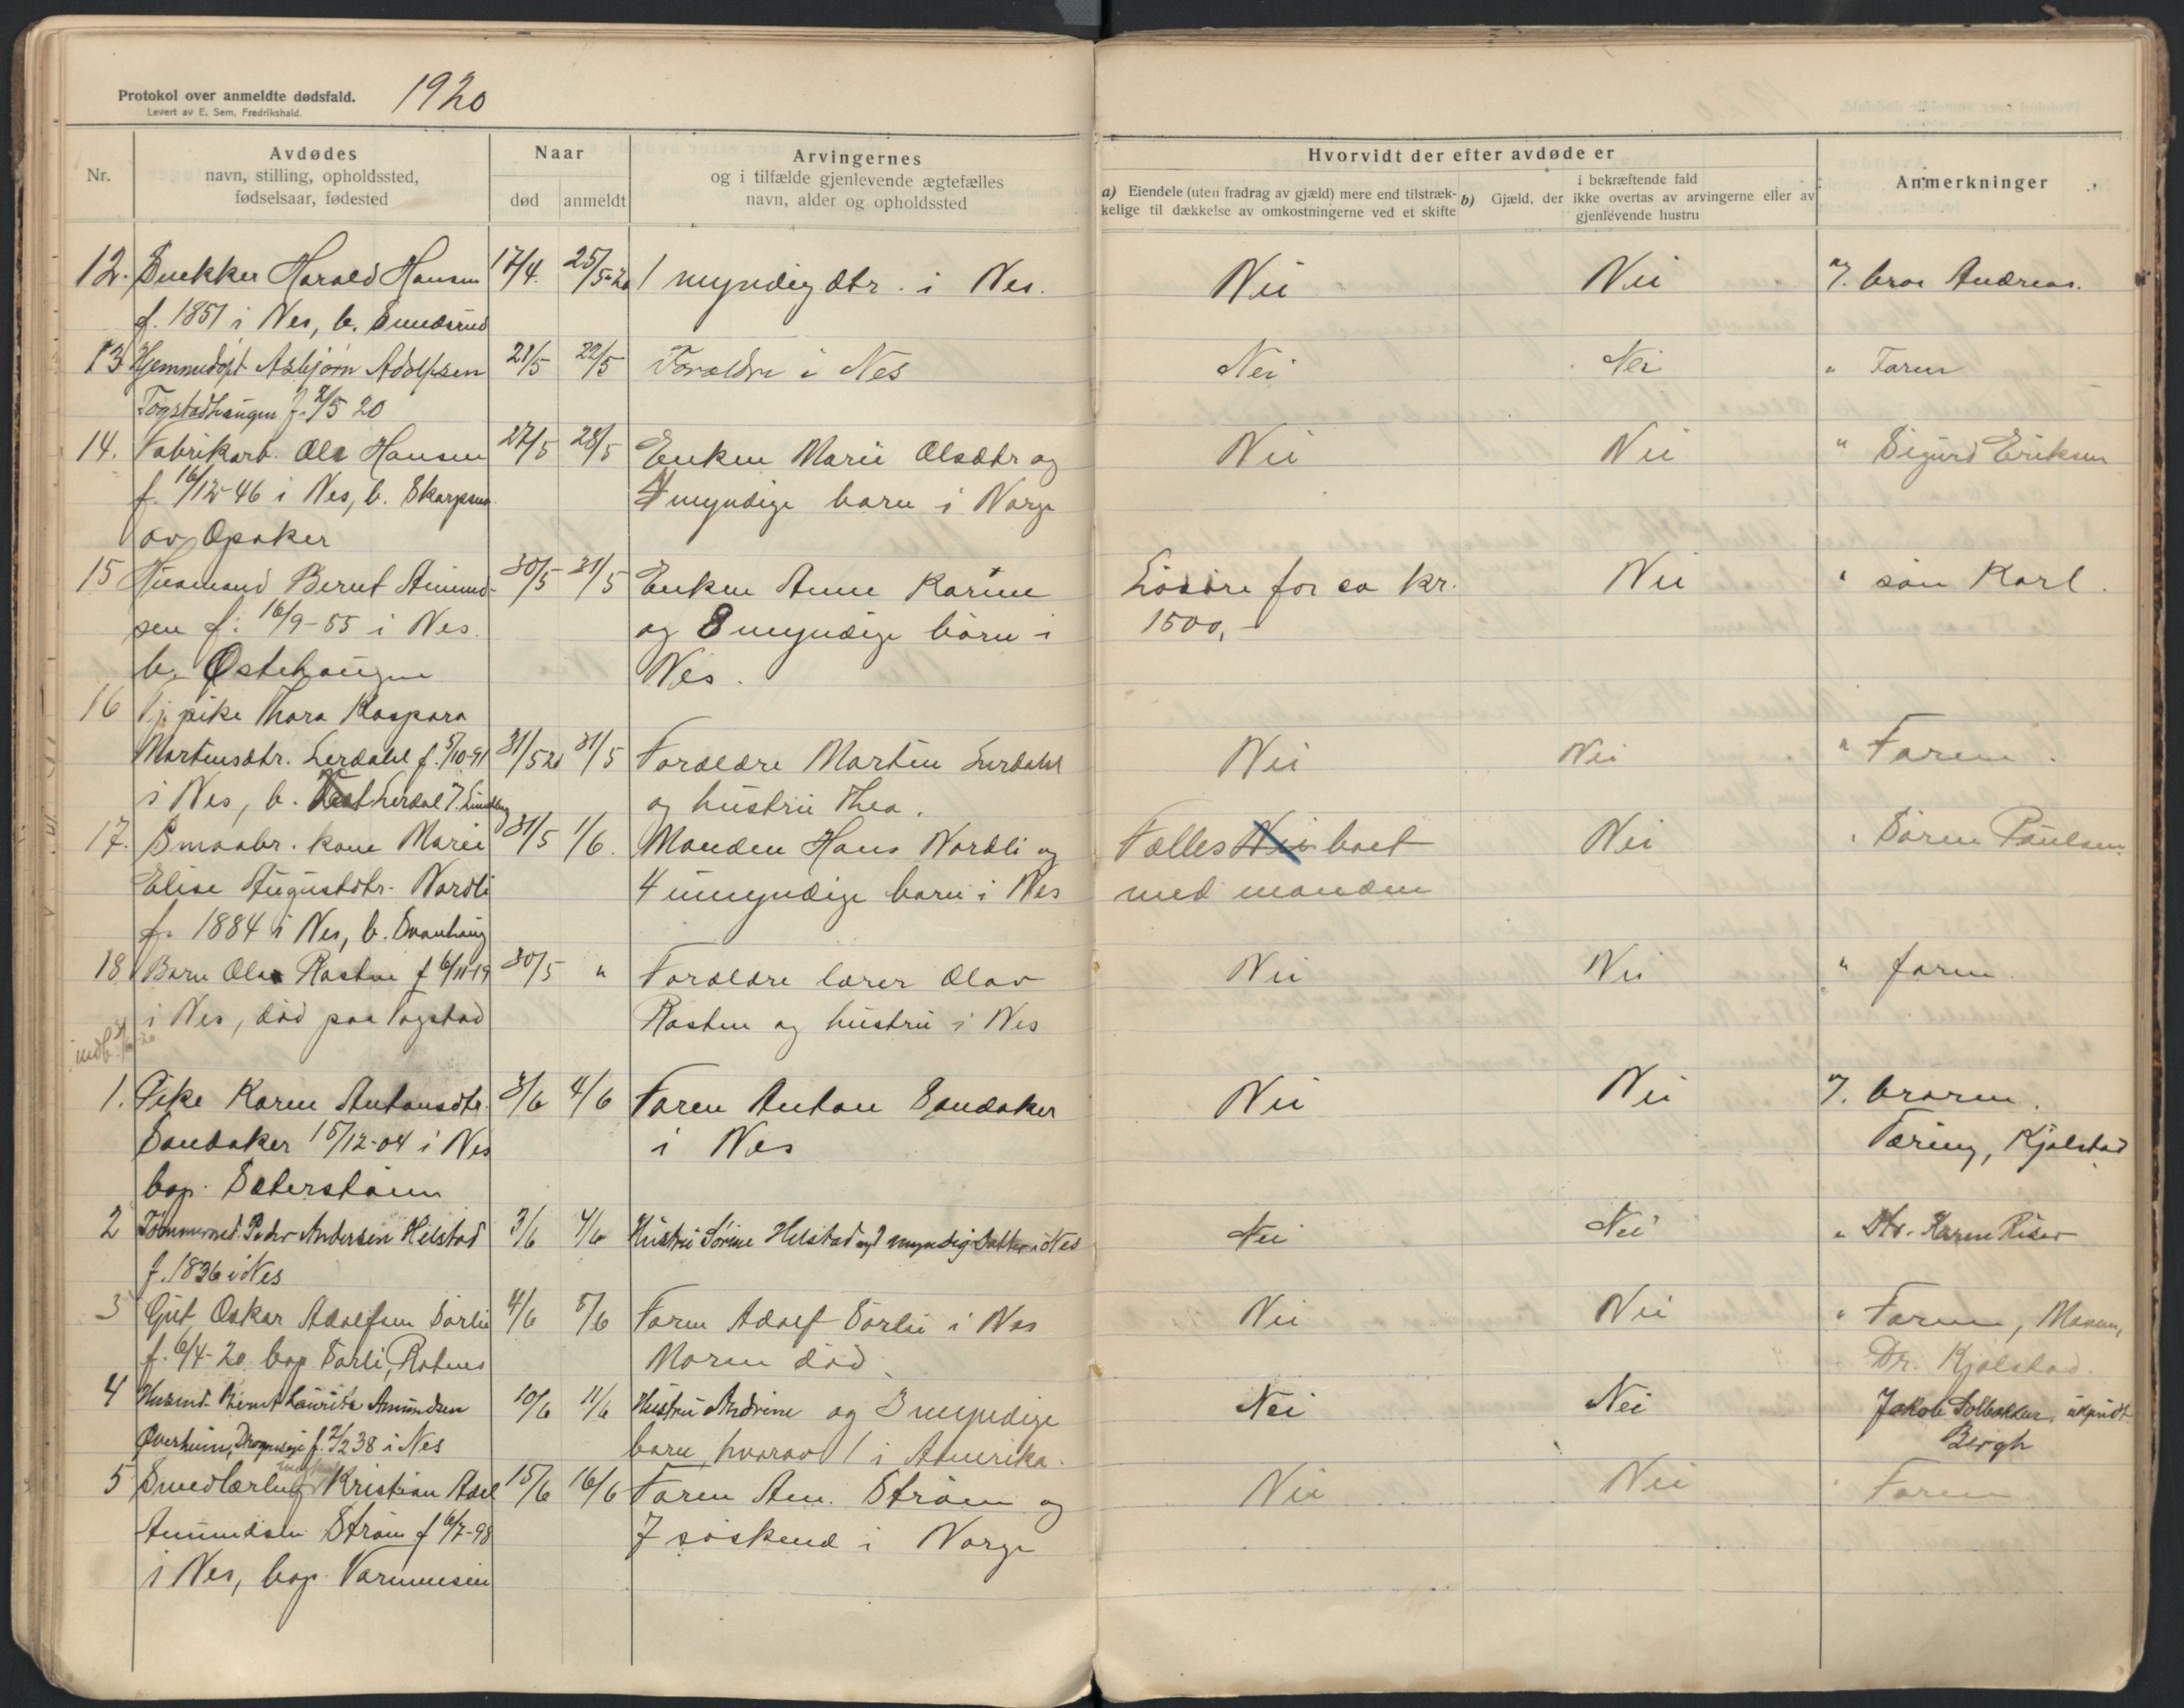 Protokol over anmeldte dødsfald. 1920
Levert av E. Sem, Fredrikshald.
Nr.
Avdødes
navn, stilling, opholdssted,
fødselsaar, fødested
Naar
død anmeldt
Arvingernes
og i tilfælde gjenlevende ægtefælles
navn, alder og opholdssted
Hvorvidt der efter avdøde er
a) Eiendele (uten fradrag av gjæld) mere end tilstræk-
kelige til dækkelse av omkostningerne ved et skifte
i bekræftende fald
b) Gjæld, der ikke overtas av arvingerne eller av
gjenlevende hustru
Anmerkninger
12. Snekker Harald Hansen 17/4. 25/5-20 1 myndig dtr. i Nes. Nei Nei Andreas.
f. 1851 i Nes, b. Sundsrud
13 Hjemmedøpt Asbjørn Adolfsen 21/5 22/5 Forældre i Nes Nei Nei " Faren
Togstadhaugen f. 5 20
14. Fabrikarb. Ole Hansen 27/5 28/5 Enken Marie Olsdtr og Nei Nei " Sigurd Eriksen
f. 16/12-46 i Nes, b. 4 myndige barn i Norge
av Opaker
15 Husmand Bernt Amund- 30/5 31/5 Enken Anne Karine Løsøre for ca kr. Nei " søn Karl.
sen f: 16/9-55 i Nes. og 8 myndige børn i 1500,-
b. Østehaugen Nes.
16 Tj. pike Thora Kaspara
Martinsdtr. Lerdahl f. 5/10-91 31/5 20 31/5 Forældre Martin Lerdahl Nei Nei " Faren.
i Nes, b. Lerdal og hustru Thea.
17. Smaabr. kone Marie 31/5 1/6. Manden Hans Nordli og Fælles Nei boet Nei " Søren Paulsen
Elise Augustdtr. Nordli 4 umyndige barn i Nes med manden
f. 1884 i Nes, b. Svanhaug
18 Barn Olav Rasten f 6/11-19 30/5 " Forældre lærer Olav Nei Nei " faren.
i Nes, død paa Togstad Rasten og hustru i Nes
indb.
1. Pike Karen Antonsdtr. 3/6 4/6 Faren Anton Sandaker Nei Nei
Sandaker 15/12-04 i Nes i Nes Tæring, Kjølstad
bop. Sæterstøen
2 Tømmermd. Peder Andersen Helstad 3/6 4/6 Hustru Sørine Helstad og 1 myndig datter i Nes Nei Nei " Dtr. Karen Riser
f. 1836 i Nes
3 Gut Oskar Adolfsen Sørlie 4/6 5/6 Faren Adolf Sørlie i Nes Nei Nei " Faren,
f. 6/4-20 bop Sørli, Rotnes Moren død Dr. Kjølstad.
4 Husmd. Bernt Lauritz Amundsen 10/6 11/6 Hustru Andrine og 3 myndige Nei Nei Jakob Solbakken,
Øverheim, f. 2/2 38 i Nes barn hvorav 1 i Amerika. Bergh
5 Smedlærling Kristian Adel 15/6 16/6 Faren Am. Strøm og Nei Nei " Faren
Amundsen Strøm f 6/7-98 7 søskend i Norge
i Nes, bop.